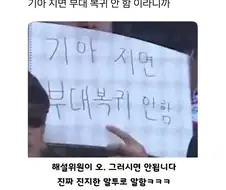 기아 지면 부대 복귀 안 함 이라니까
기아 지면
부대복귀 안함
해설위원이 오. 그러시면 안됩니다
진짜 진지한 말투로 말함ㅋㅋㅋ